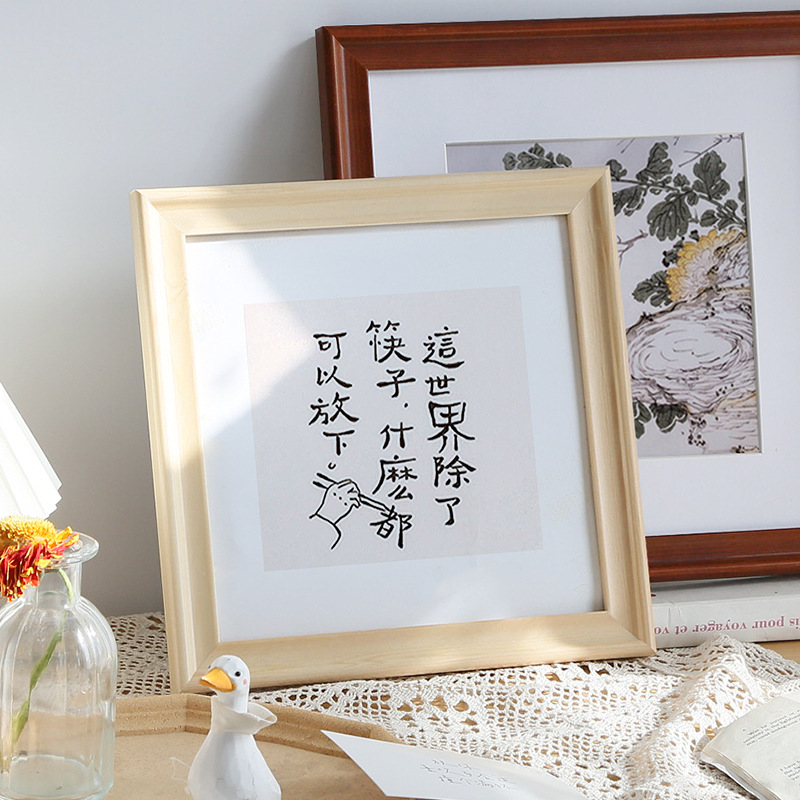 這世界除了
筷子,什麼都
可以放下。
pois voyager et voir